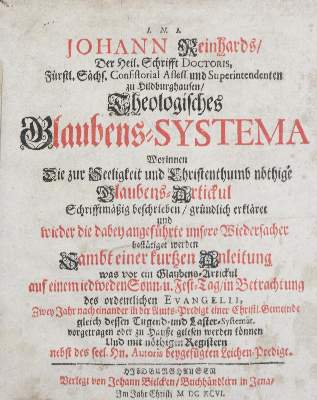 I. N. I.
JOHANN Reinhards/
Der Heil. Schrifft DOCTORIS,
Fürstl. Sächs. Consistorial Assess. und Superintendenten
zu Hildburghausen/
Theologisches
Glaubens-SYSTEMA
Worinnen
Die zur Seeligkeit und Christenthumb nöthige
Glaubens-Artickul
Schrifftmäßig beschrieben/ gründlich erkläret
und
wieder die dabey angeführte unsre Wiedersacher
bestätiget werden
Sambt einer kurtzen Anleitung
was vor ein Glaubens-Artickul
auf einem iedweden Sonn- u. Fest-Tag/ in Betrachtung
des ordentlichen EVANGELII,
Zwey Jahr nach einander in der Ambts-Predigt einer Christl. Gemeinde
gleich dessen Tugend- und Laster-Systemat.
vorgetragen oder zu Hauße gelesen werden können
Und mit nöthigen Registern
nebst des seel. Hn. Autoris beygefügten Leichen-Predigt.
HILDBURGHAUSEN
Verlegt von Johann Bielcken/ Buchhändlern in Jena/
Im Jahr Christi M DC XCVI.